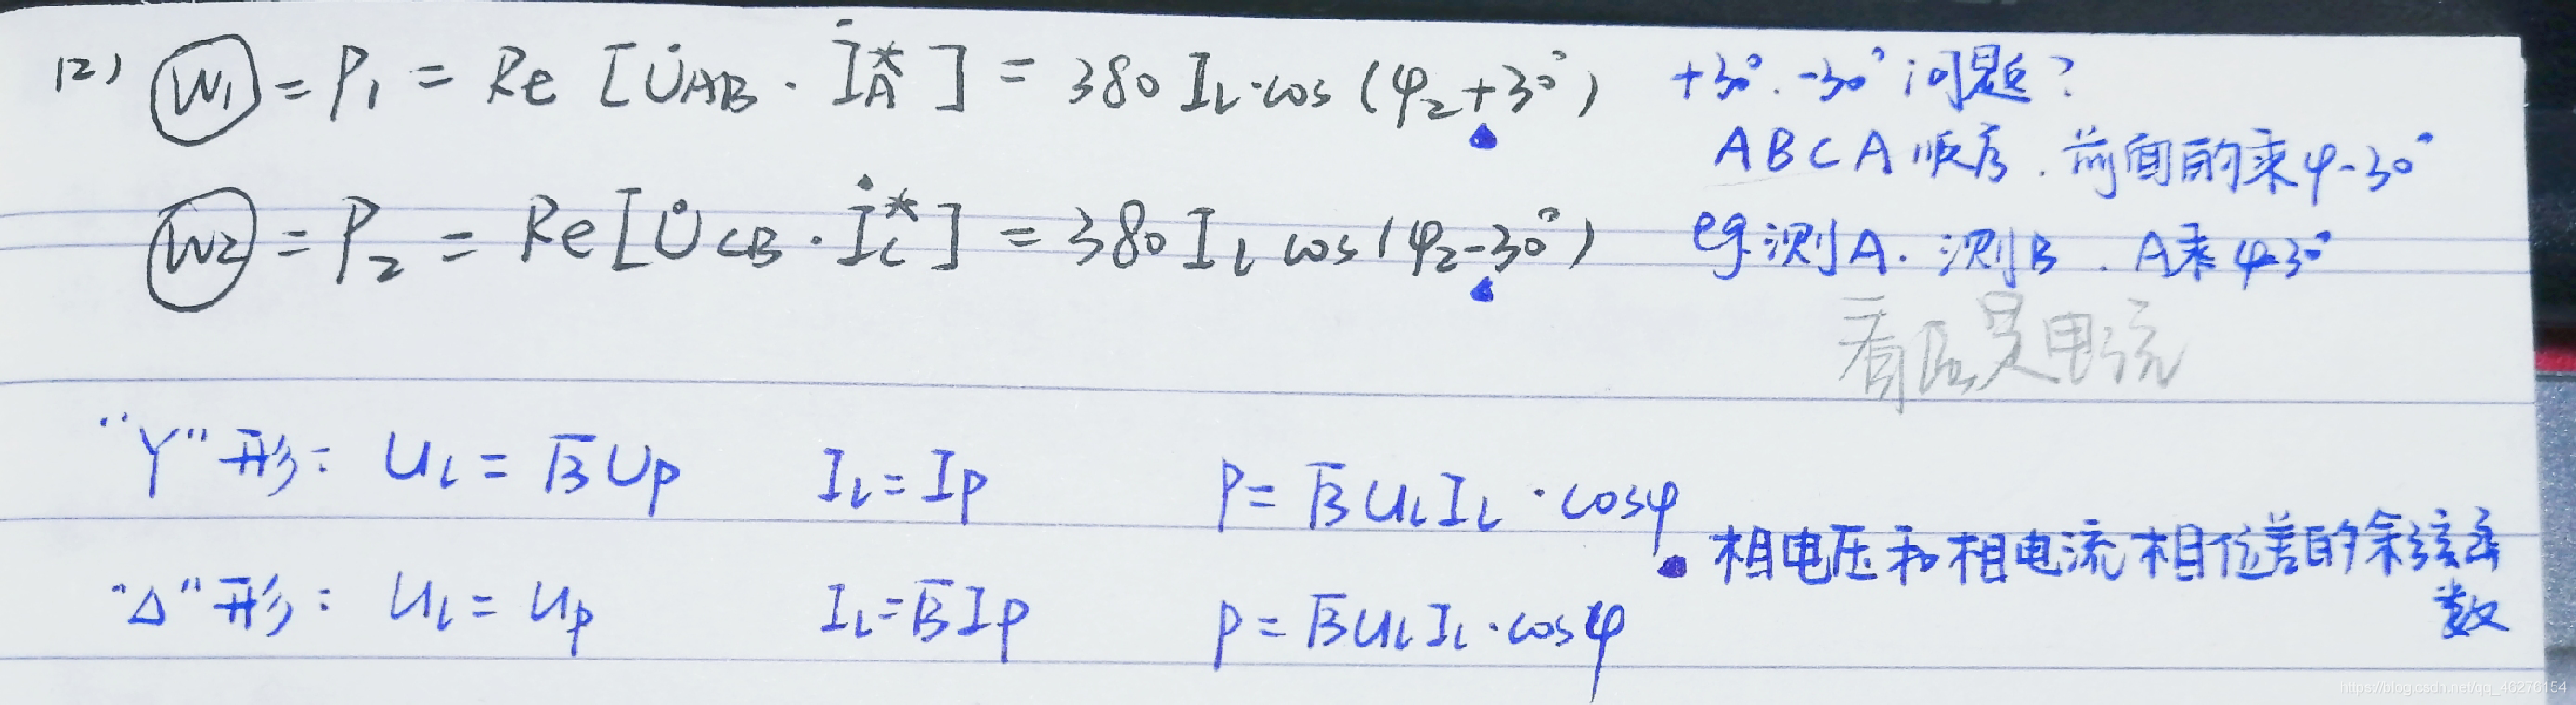 (2) W₁ = P₁ = Re [U̇AB · İA*] = 380 IL·cos (φ₂+30°) +30°. -30° 问题?
ABCA 顺序. 前面的乘φ-30°
W2 = P₂ = Re[U̇CB · İC*] = 380 IL cos (φ₂-30°) eg.测A. 测B. A乘φ-30°
看 是电流
"Y"形: UL = √3 UP IL = IP P = √3 ULIL · cosφ
相电压和相电流相位差的余弦函数
"Δ"形: UL = UP IL = √3 IP P = √3 ULIL · cosφ
https://blog.csdn.net/qq_46276154